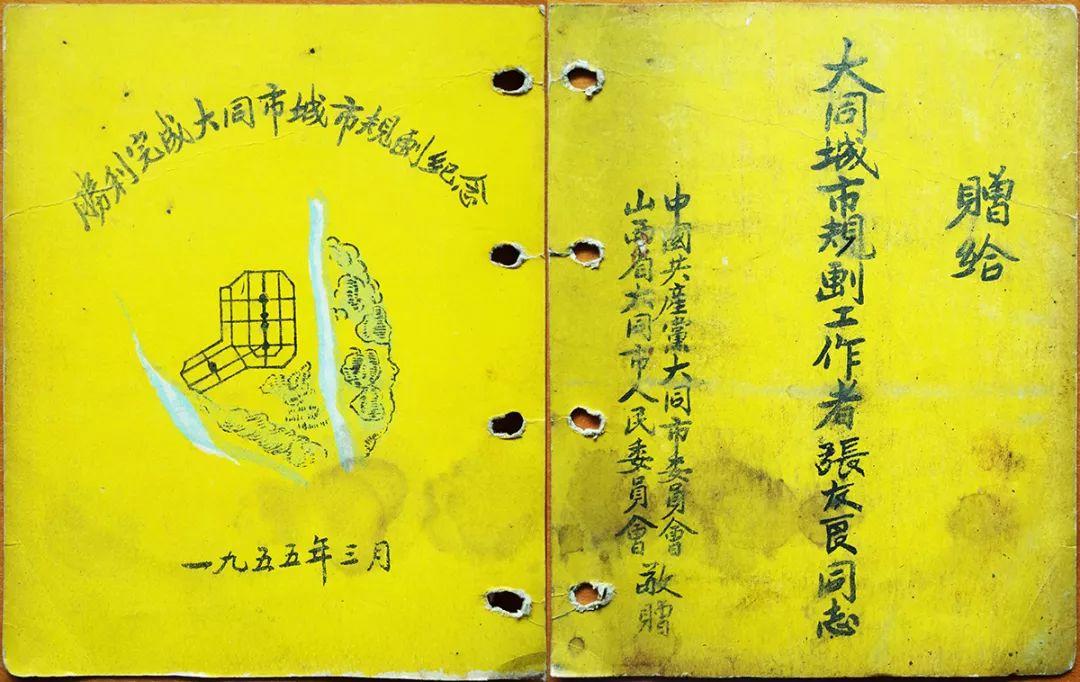 勝利完成大同市城市規劃紀念
一九五五年三月
贈給
大同城市規劃工作者張友良同志
中國共產黨大同市委員會
山西省大同市人民委員會
敬贈